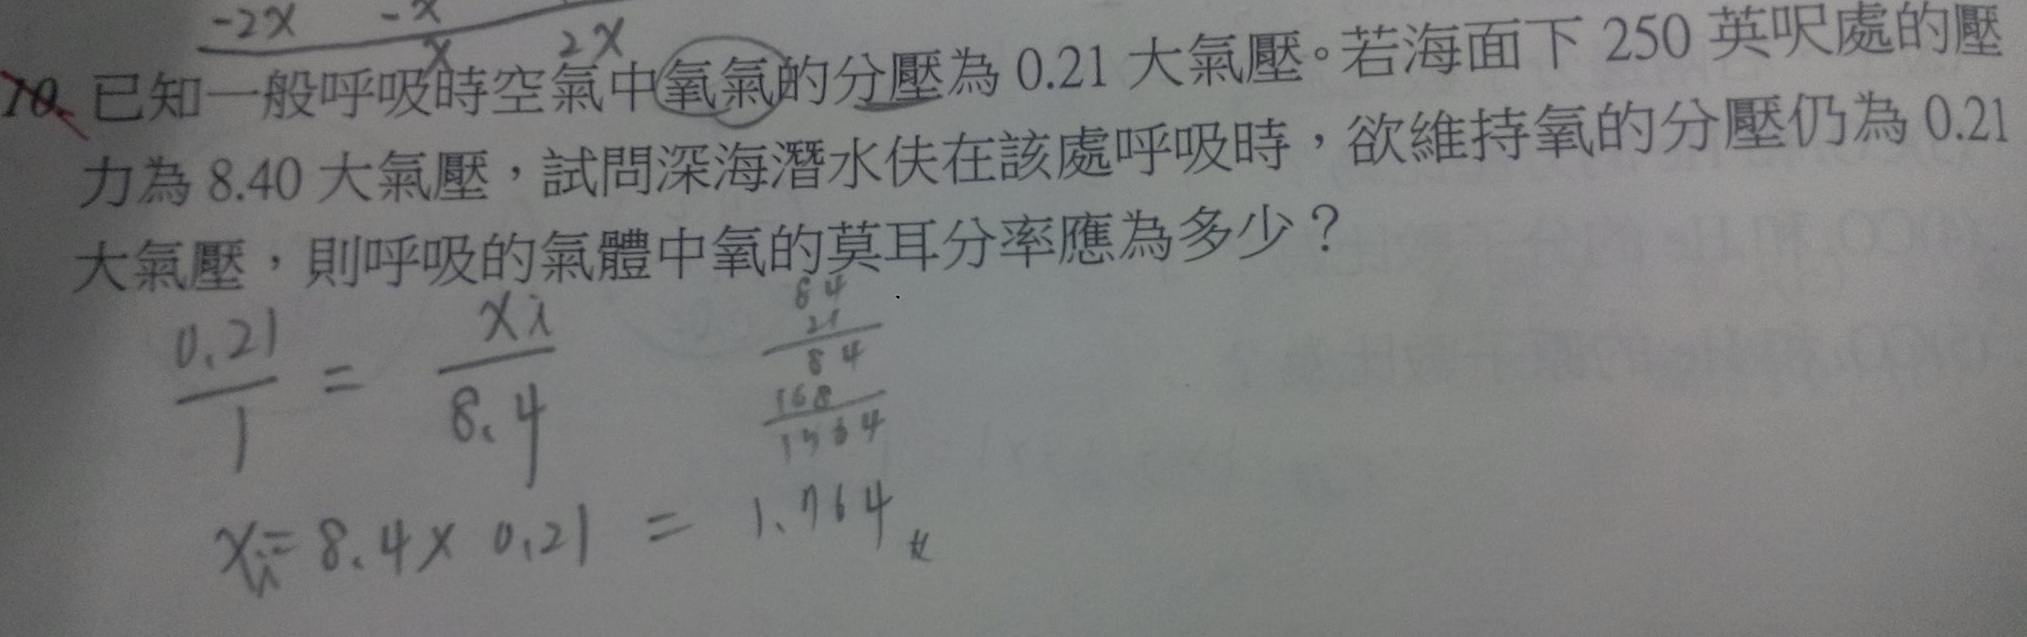 -2x -x
x 2x
10. 已知一般呼吸時空氣中氧氣的分壓為 0.21 大氣壓。若海面下 250 英呎處的壓
力為 8.40 大氣壓，試問深海潛水伕在該處呼吸時，欲維持氧的分壓仍為 0.21
大氣壓，則呼吸的氣體中氧的莫耳分率應為多少？
0.21/1 = xi/8.4
84
21
84
168
1764
xi = 8.4 x 0.21 = 1.764